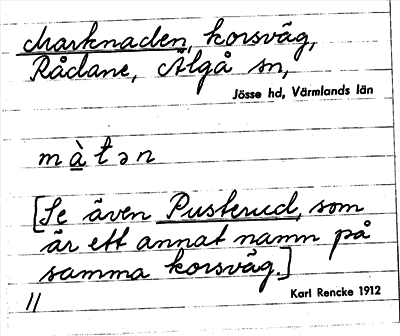 Marknaden, korsväg,
Rådane, Älgå sn,
Jösse hd, Värmlands län
m à t ə n
[Se även Pusterud, som
är ett annat namn på
samma korsväg.]
Karl Rencke 1912
//